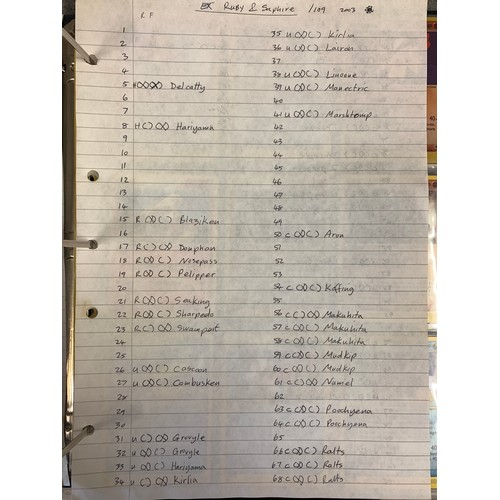 EX Ruby & Saphire /109 2003
R F
1
2
3
4
5 H(X)(X) Delcatty
6
7
8 H( )(X) Hariyama
9
10
11
12
13
14
15 R(X)( ) Blaziken
16
17 R( )(X) Donphan
18 R(X)( ) Nosepass
19 R(X)( ) Pelipper
20
21 R(X)( ) Seaking
22 R(X)( ) Sharpedo
23 R( )(X) Swampert
24
25
26 u(X)( ) Cascoon
27 u(X)( ) Combusken
28
29
30
31 u( )(X) Grovyle
32 u(X)( ) Grovyle
33 u(X)( ) Hariyama
34 u( )(X) Kirlia
35 u(X)( ) Kirlia
36 u(X)( ) Lairon
37
38 u(X)( ) Linoone
39 u(X)( ) Manectric
40
41 u(X)( ) Marshtomp
42
43
44
45
46
47
48
49
50 c(X)( ) Aron
51
52
53
54 c(X)( ) Koffing
55
56 c( )(X) Makuhita
57 c(X)( ) Makuhita
58 c(X)( ) Makuhita
59 c(X)( ) Mudkip
60 c(X)( ) Mudkip
61 c( )(X) Numel
62
63 c(X)( ) Poochyena
64 c(X)( ) Poochyena
65
66 c(X)( ) Ralts
67 c(X)( ) Ralts
68 c(X)( ) Ralts